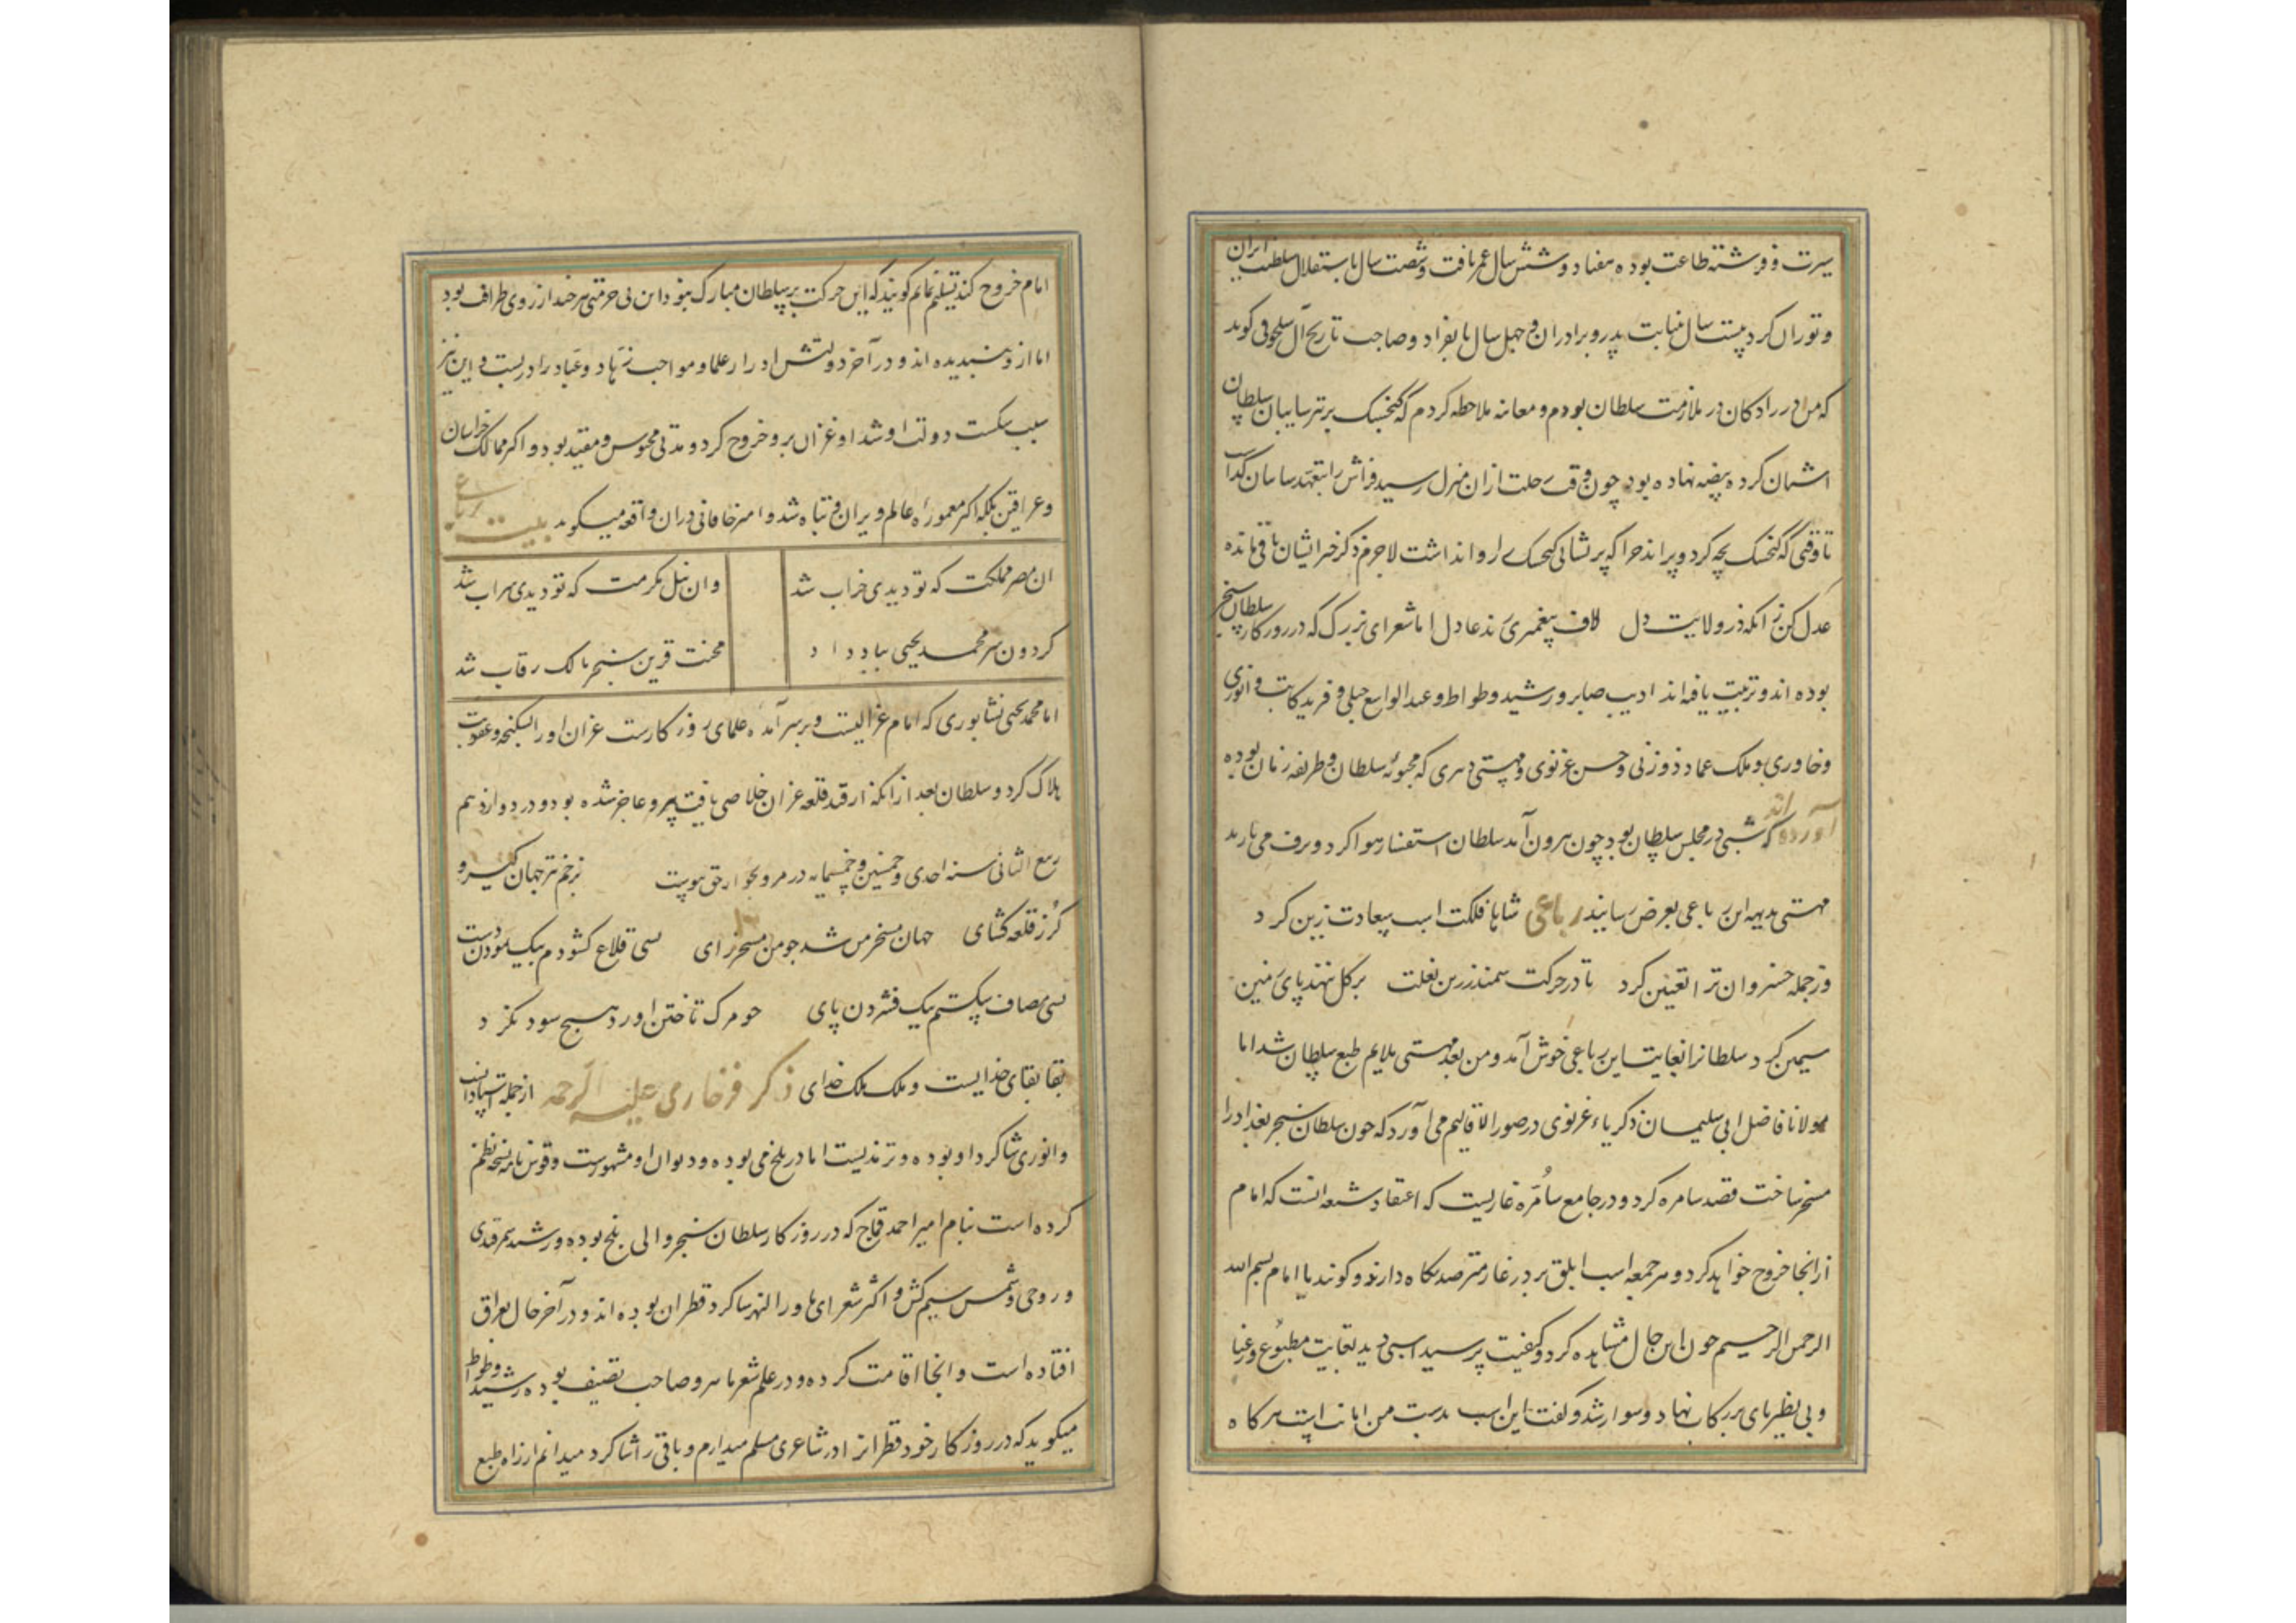 سیرت و فرشته طاعت بوده هفتاد و شش سال عمر یافت و شصت سال باستقلال سلطنت ایران
و توران کرد بیست سال بنیابت پدر و برادران و چهل سال بانفراد و صاحب تاریخ آل سلجوق گوید
که من در رادکان در ملازمت سلطان بودم و معاینه ملاحظه کردم که گنجشک بر تیر سایبان سلطان
آشیان کرده بیضه نهاده بود چون وقت رحلت ازان منزل رسید فراش را بتعهد سایبان گذاشت
تا وقتی که گنجشک بچه کرد و پراند چرا که پریشانی گنجشک روا نداشت لاجرم ذکر خیر ایشان باقی مانده
عدل کن زانکه در ولایت دل لاف پیغمبری زند عادل اما شعرای بزرگ که در روزکار سلطان سنجر
بوده اند و تربیت یافته اند ادیب صابر و رشید وطواط و عبد الواسع جبلی و فرید کاتب و انوری
و خاوری و ملک عماد زوزنی و حسن غزنوی و مهستی دبیری که محبوبه سلطان و ظریفه زمان بوده
آورده اند که شبی در مجلس سلطان بود چون بیرون آمد سلطان استفسار هوا کرد و برف می بارید
مهستی بدیهه این رباعی بعرض رسانید رباعی شاها فلکت اسب سعادت زین کرد
وز جمله خسروان ترا تعیین کرد تا در حرکت سمند زرین نعلت بر گل ننهد پای زمین
سیمین کرد سلطانرا بغایت این رباعی خوش آمد و من بعد مهستی ملایم طبع سلطان شد اما
مولانا فاضل ابی سلیمان زکریاء غزنوی در صور الاقالیم می آورد که چون سلطان سنجر بغداد را
مسخر ساخت قصد سامره کرد و در جامع سامره غاریست که اعتقاد شیعه آنست که امام
ازانجا خروج خواهد کرد و هر جمعه اسب ابلق بر در غار مترصد نگاه دارند و گویند یا امام بسم الله
الرحمن الرحیم چون این حال مشاهده کرد و کیفیت پرسید اسبی دید بغایت مطبوع و رعنا
و بی نظیر پای در رکاب نهاد و سوار شد و گفت این اسب بدست من امانت است هرگاه
امام خروج کند تسلیم نمایم گویند که این حرکت بر سلطان مبارک نبود و این بی حرمتی هر چند از روی ظرافت بود
اما ازو نپسندیده اند و در آخر دولتش ادرار علما و مواجب زهاد و عباد را در بست و این نیز
سبب شکست دولت او شد و غزان برو خروج کرد و مدتی محبوس و مقید بود و اکثر ممالک خراسان
و عراقین بلکه اکثر معموره عالم ویران و تباه شد و امیر خاقانی دران واقعه میگوید بیت رباعی
ان مصر مملکت که تو دیدی خراب شد وان نیل مکرمت که تو دیدی سراب شد
گردون سر محمد یحیی بباد داد محنت قرین سنجر مالک رقاب شد
امام محمد یحیی نشابوری که امام غزالیست و بر سر آمده علمای روزکارست غزان او را بشکنجه و عقوبت
هلاک کرد و سلطان بعد از انکه از قید قلعه غزان خلاصی یافت پیر و عاجز شده بود و در دوازدهم
ربیع الثانی سنه احدی و خمسین و خمسمایه در مرو بجوار حق پیوست بزخم تیر جهان گیر و
گرز قلعه گشای جهان مسخر من شد چو من مسخر رای بسی قلاع گشودم بیک نمودن دست
بسی مصاف شکستم بیک فشردن پای چو مرک تاختن آورد هیچ سود نکرد
بقا بقای خدایست و ملک ملک خدای ذکر فرخاری علیه الرحمه از جمله استادانست
و انوری شاکرد او بوده و ترمذیست اما در بلخ می بوده و دیوان او مشهورست و قوس نامه نسخه نظم
کرده است بنام امیر احمد قماج که در روزکار سلطان سنجر والی بلخ بوده و رشید سمرقندی
و روحی و شمس سیم کش و اکثر شعرای ماورا النهر شاکرد قطران بوده اند و در آخر حال بعراق
افتاده است و انجا اقامت کرده و در علم شعر ماهر و صاحب تصنیف بوده رشید وطواط
میگوید که در روزکار خود قطرانرا در شاعری مسلم میدارم و باقی را شاکرد میدانم از راه طبع